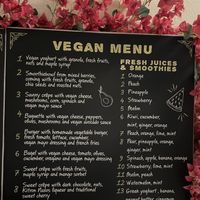 VEGAN MENU
1 Vegan yoghurt with granola, fresh fruit,
nuts and maple syrup
2 Smoothiebowl from mixed berries,
coming with fresh fruit, granola,
chia seeds and roasted nuts
3 Sunny crêpe with vegan cheese,
mushrooms, corn, spinach and
vegan mayo sauce
4 Baguette with vegan cheese, peppers,
olives, mushrooms and vegan avocado sauce
5 Burger with homemade vegetable burger,
fresh tomato, lettuce, cucumber,
vegan mayo dressing and french fries
6 Bagel with vegan cheese, tomato, olives,
cucumber, oregano and vegan mayo dressing
7 Sweet crêpe with fresh fruit,
maple syrup and vegan sorbet
8 Sweet crêpe with dark chocolate, nuts,
liqueur and a traditional
FRESH JUICES
& SMOOTHIES
1 Orange
2 Peach
3 Pineapple
4 Strawberry
5 Melon
6 Kiwi, cucumber,
mint, ginger
7 Peach, orange, lime, mint
8 Pear, pineapple, apple,
ginger, mint
9 Spinach, apple, banana, orange
10 Strawberry, lime, mint
11 Melon, peach
12 Watermelon, mint
13 Greek yoghurt, banana,